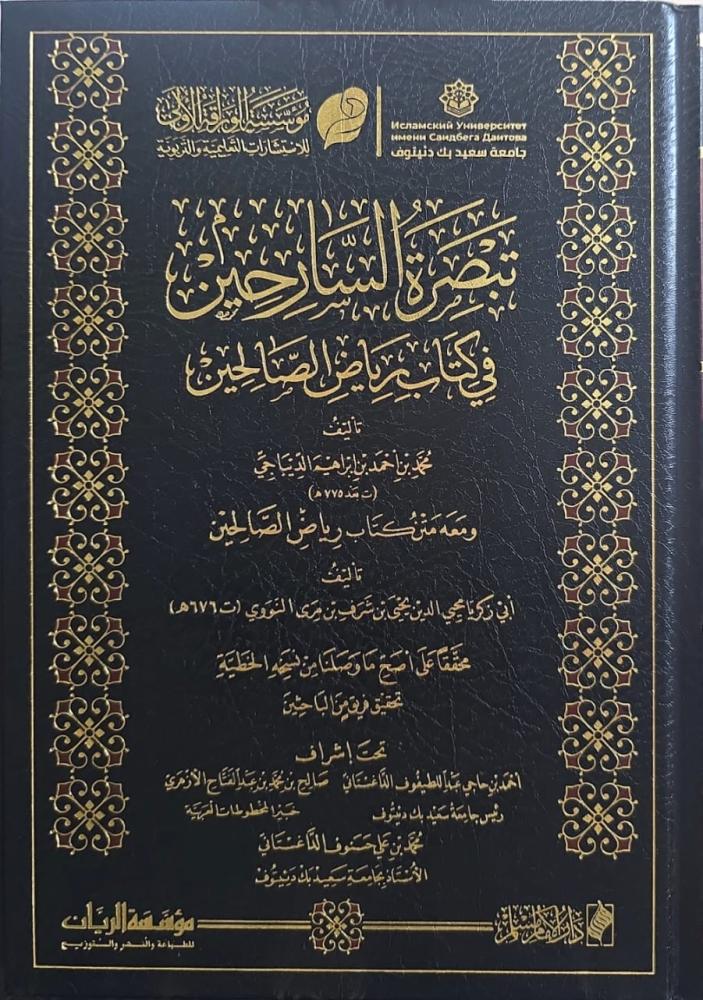 مؤسسة الوراقة الأولى
للاستشارات التعليمية والتربوية
Исламский Университет
имени Саидбега Даитова
جامعة سعيد بك دنيتوف
تَبْصِرَةُ السَّارِحِيْن
فِي كِتَابِ رِيَاضِ الصَّالِحِيْن
تأليفُ
مُحَمَّد بْن أحْمَد بْن إبْرَاهِيم الدِّيبَاجِيّ
(ت بعد ٧٧٥هـ)
ومَعَه مَتْن كِتَاب رِيَاضِ الصَّالِحِيْن
تأليفُ
أبي زكريا محيي الدين يحيى بن شَرَف بن مِرَى النَّووي (ت ٦٧٦هـ)
محقَّقاً عَلَى أصَحِّ مَا وَصَلَنَا مِن نُسَخِهِ الخَطِّيَّة
تحقيق فريق مِنَ البَاحِثِينَ
تَحتَ إشْرَاف
أحمد بن حاجي عبد اللطيفوف الدَّاغستاني
صالح بن محمد بن عبد الفتاح الأزهري
رئيس جامعة سَعيْد بك دنيتوف
خبير المخطوطات العربية
مُحَمَّد بْن عَلي حَسَنوف الدَّاغستاني
الأستاذ بجامعة سعيد بك دنيتوف
مؤسَّسَة الريَّان
للطباعة والنشر والتوزيع
دار الإمام مسلم